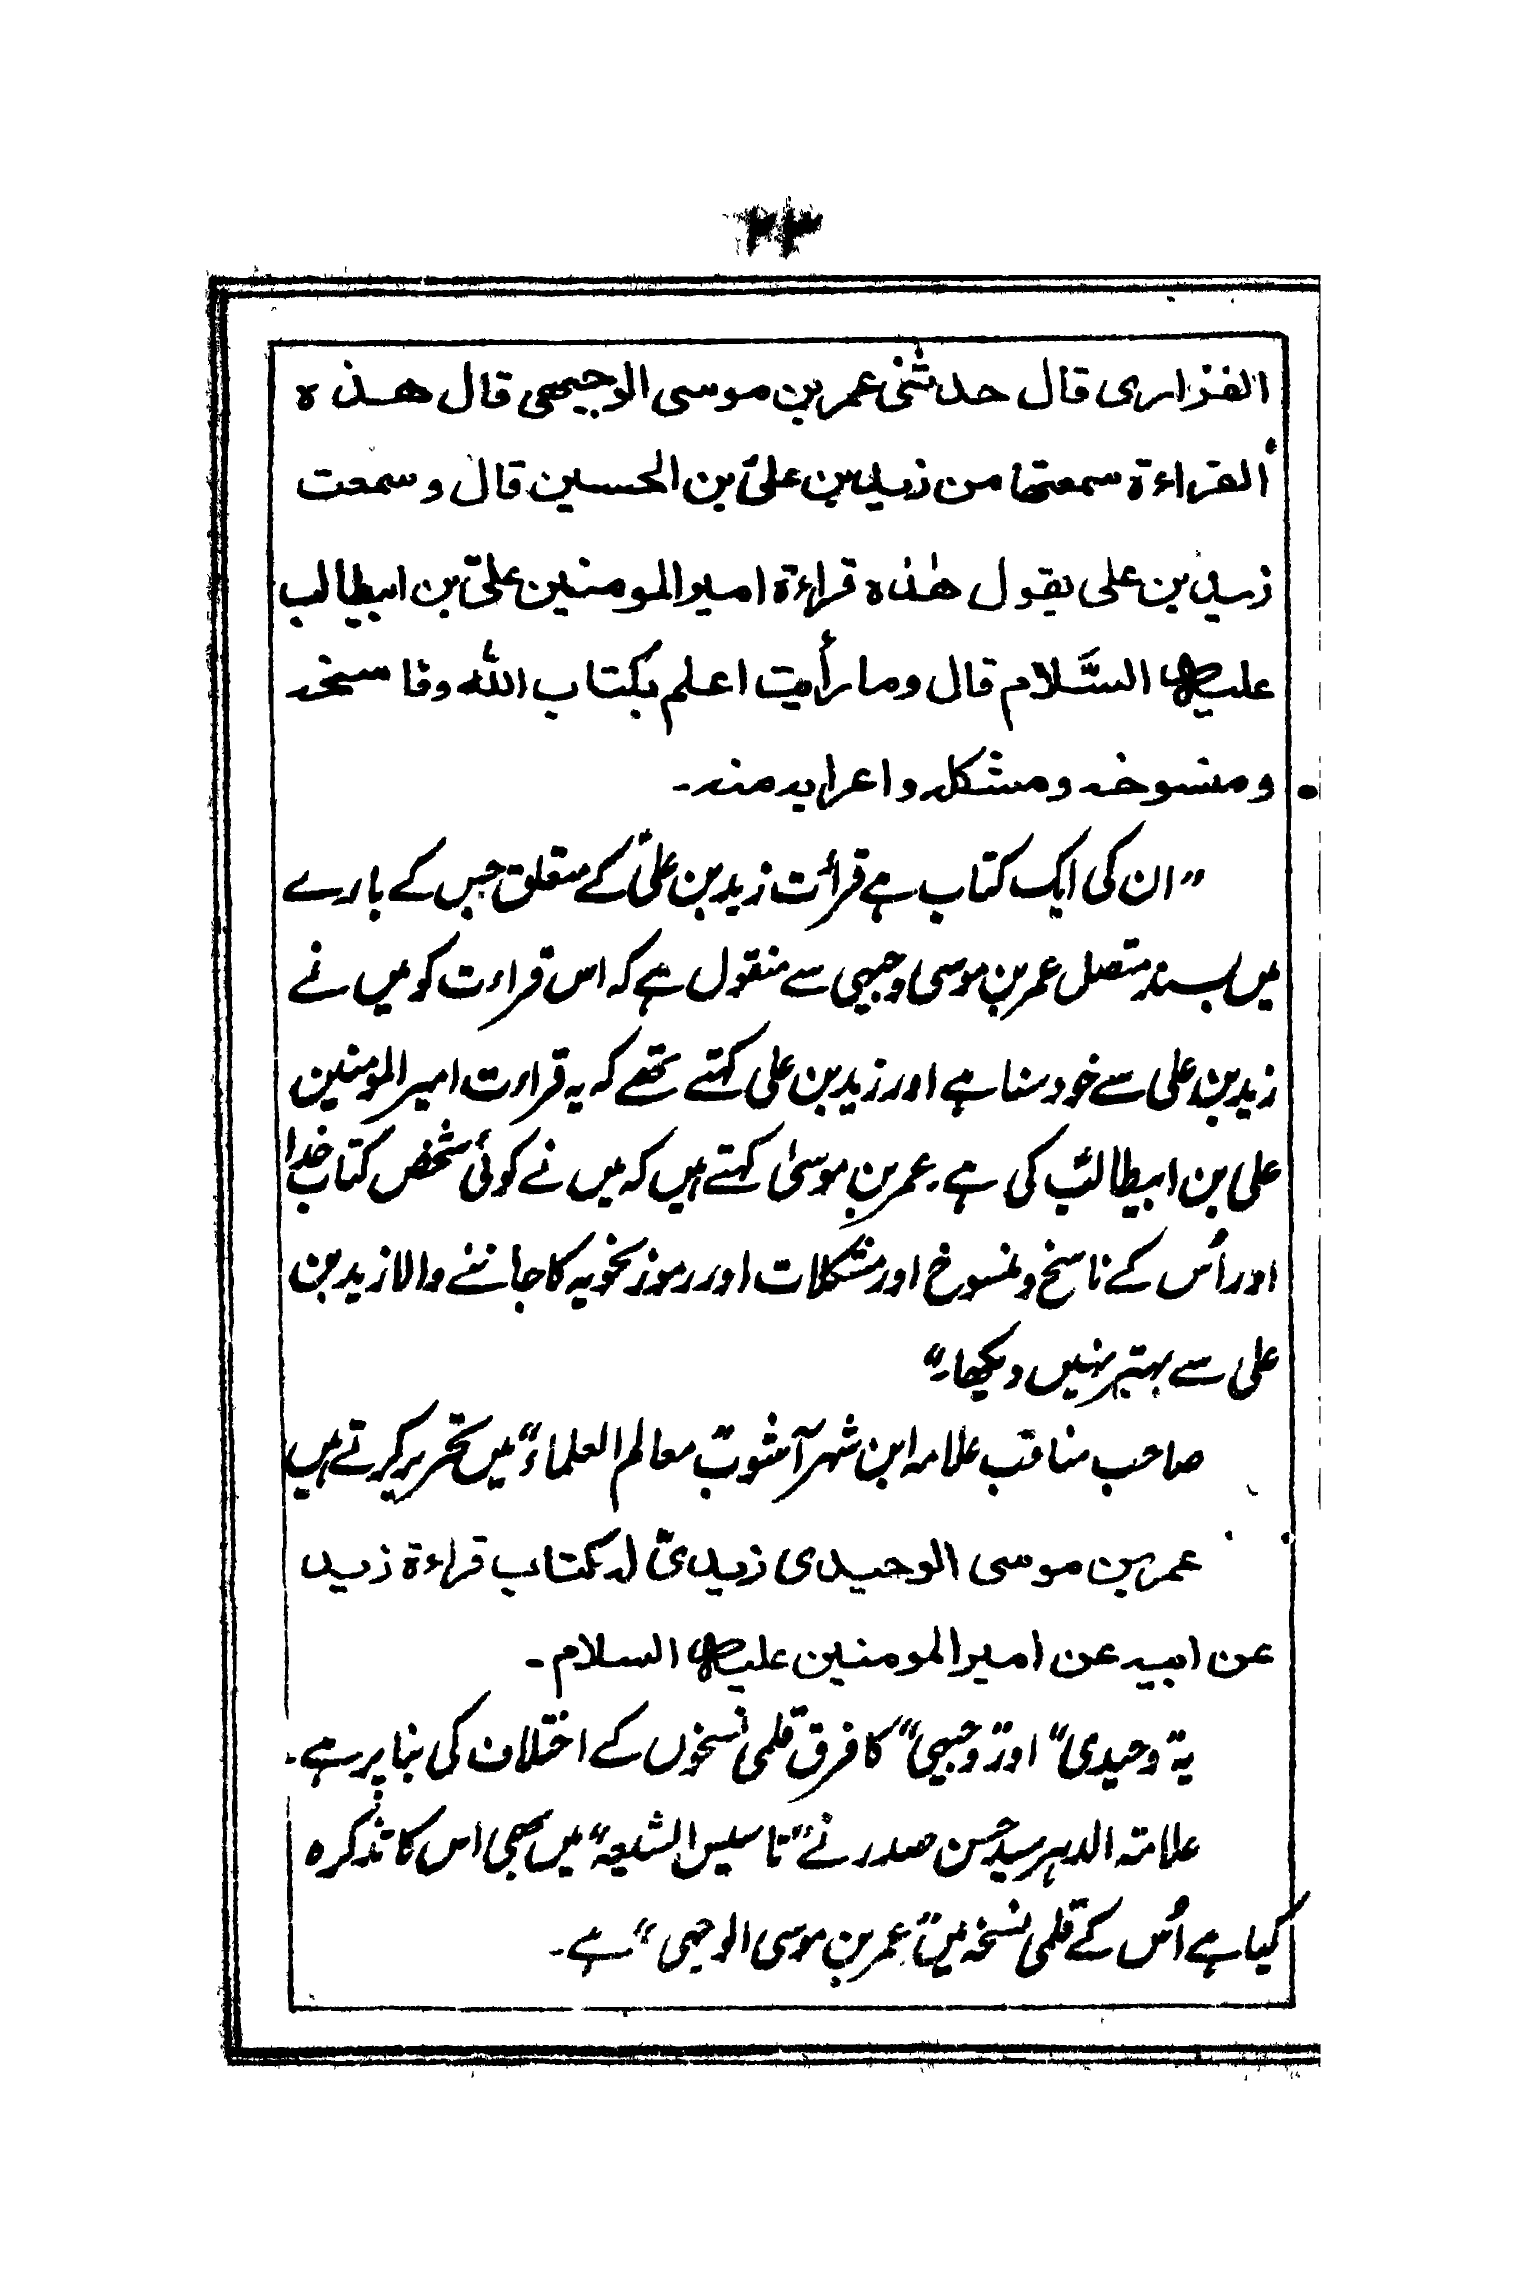 ۲۳
الفزاری قال حدثنی عمر بن موسی الوجیہی قال ھـذہ
القراءة سمعتھا من زید بن علیؑ بن الحسین قال وسمعت
زید بن علی یقول ھٰذہ قراءة امیر المومنین علیؑ بن ابیطالب
علیہ السَّلام قال وما رأیت اعلم بکتاب اللہ وناسخہ
ومنسوخہ ومشکلہ واعرابہ منہ۔
”ان کی ایک کتاب ہے قرأت زید بن علیؑ کے متعلق جس کے بارے
میں بسند متصل عمر بن موسی وجیہی سے منقول ہے کہ اس قراءت کو میں نے
زید بن علی سے خود سنا ہے اور زید بن علی کہتے تھے کہ یہ قراءت امیر المومنین
علی بن ابیطالبؑ کی ہے۔ عمر بن موسیٰ کہتے ہیں کہ میں نے کوئی شخص کتاب خدا
اور اُس کے ناسخ و منسوخ اور مشکلات اور رموز نحویہ کا جاننے والا زید بن
علی سے بہتر نہیں دیکھا۔“
صاحب مناقب علامہ ابن شہر آشوب ”معالم العلماء“ میں تحریر کرتے ہیں
عمر بن موسی الوحیدی زیدیّ لہ کتاب قراءة زید
عن ابیہ عن امیر المومنین علیہ السلام۔
یہ ”وحیدی“ اور ”وجیہی“ کا فرق قلمی نسخوں کے اختلاف کی بنا پر ہے۔
علامۃ الدہر سید حسن صدر نے ”تاسیس الشیعہ“ میں بھی اس کا تذکرہ
کیا ہے اُس کے قلمی نسخہ میں ”عمر بن موسی الوجہی“ ہے۔